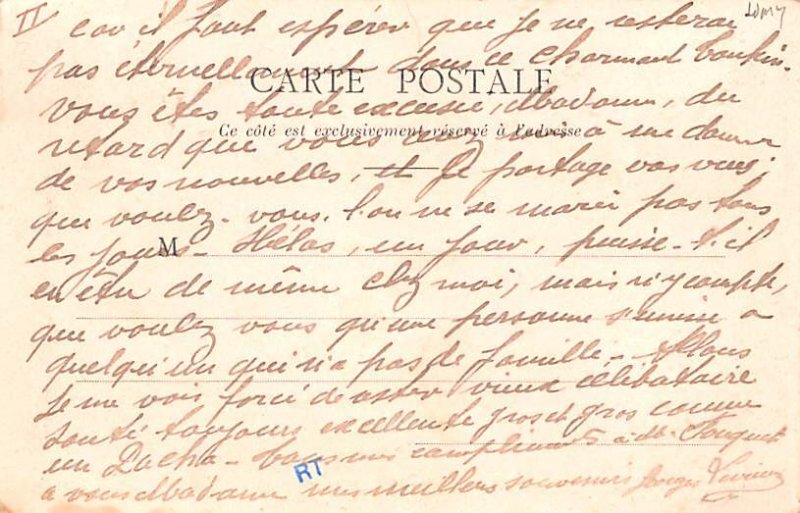 II car il faut espérer que je ne resterai
pas éternellement dans ce charmant
CARTE POSTALE
vous êtes toute excusée, Madame, du
Ce côté est exclusivement réservé à l'adresse
retard que vous avez mis à me donner
de vos nouvelles, et Je partage vos vues;
que voulez-vous, l'on ne se marie pas tous
les jours - Hélas, un jour, puisse-t-il
M
en être de même chez moi, mais n'y compte,
que voulez vous qu'une personne s'unisse à
quelqu'un qui n'a pas de famille -
je me vois forcé de rester vieux célibataire
santé toujours excellente gros et gros comme
un Pacha - mes compliments à M. Fouquet
à vous Madame mes meilleurs souvenirs
RT